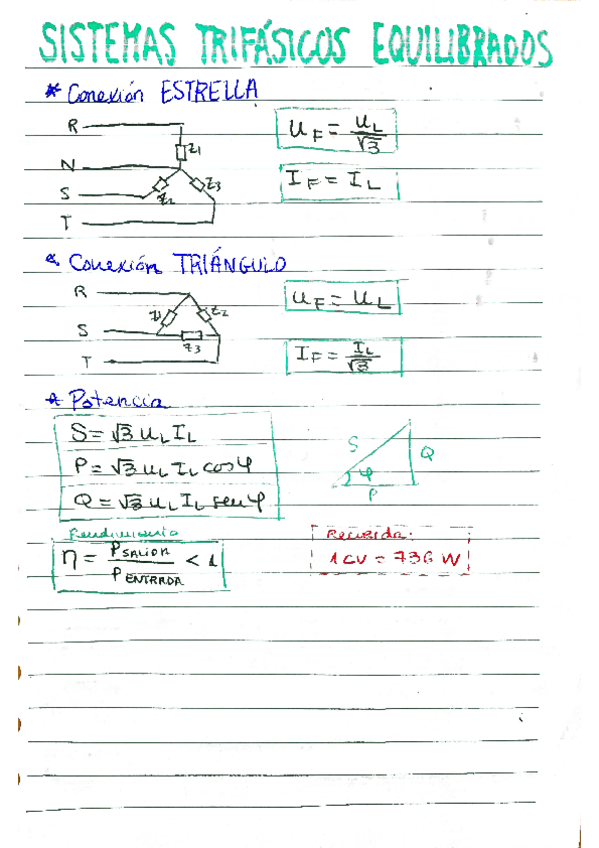 SISTEMAS TRIFÁSICOS EQUILIBRADOS
* Conexión ESTRELLA
R
N
S
T
Z1
Z2
Z3
U_F = U_L/√3
I_F = I_L
* Conexión TRIÁNGULO
R
S
T
Z1
Z2
Z3
U_F = U_L
I_F = I_L/√3
* Potencia
S = √3 U_L I_L
P = √3 U_L I_L cos φ
Q = √3 U_L I_L sen φ
S
Q
φ
P
Rendimiento
η = P_SALIDA/P_ENTRADA < 1
Recuerda:
1 CV = 736 W